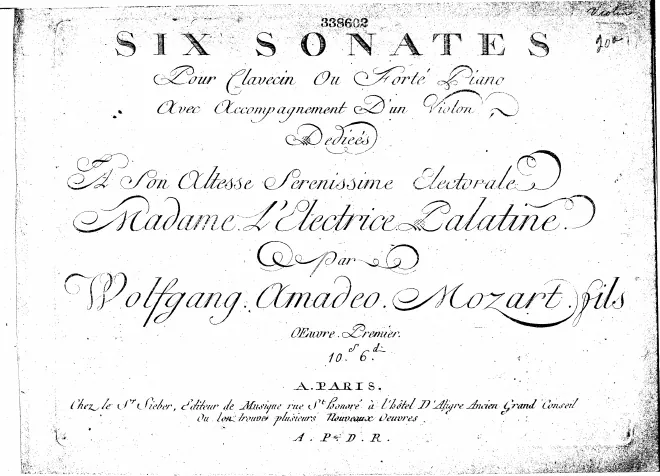 Violin
338602
20a
SIX SONATES
Pour Clavecin Ou Forté Piano
Avec Accompagnement D'un Violon
Dediées
A Son Altesse Serenissime Electorale
Madame L'Electrice Palatine.
Par
Wolfgang. Amadeo. Mozart. fils
Œuvre. Premier.
10.s 6.d
A. PARIS.
Chez le Sr Sieber, Editeur de Musique rue St honoré à l'hôtel D'Aligre Ancien Grand Conseil
Ou l'on trouve plusieurs Nouveaux Oeuvres
A. P. D. R.